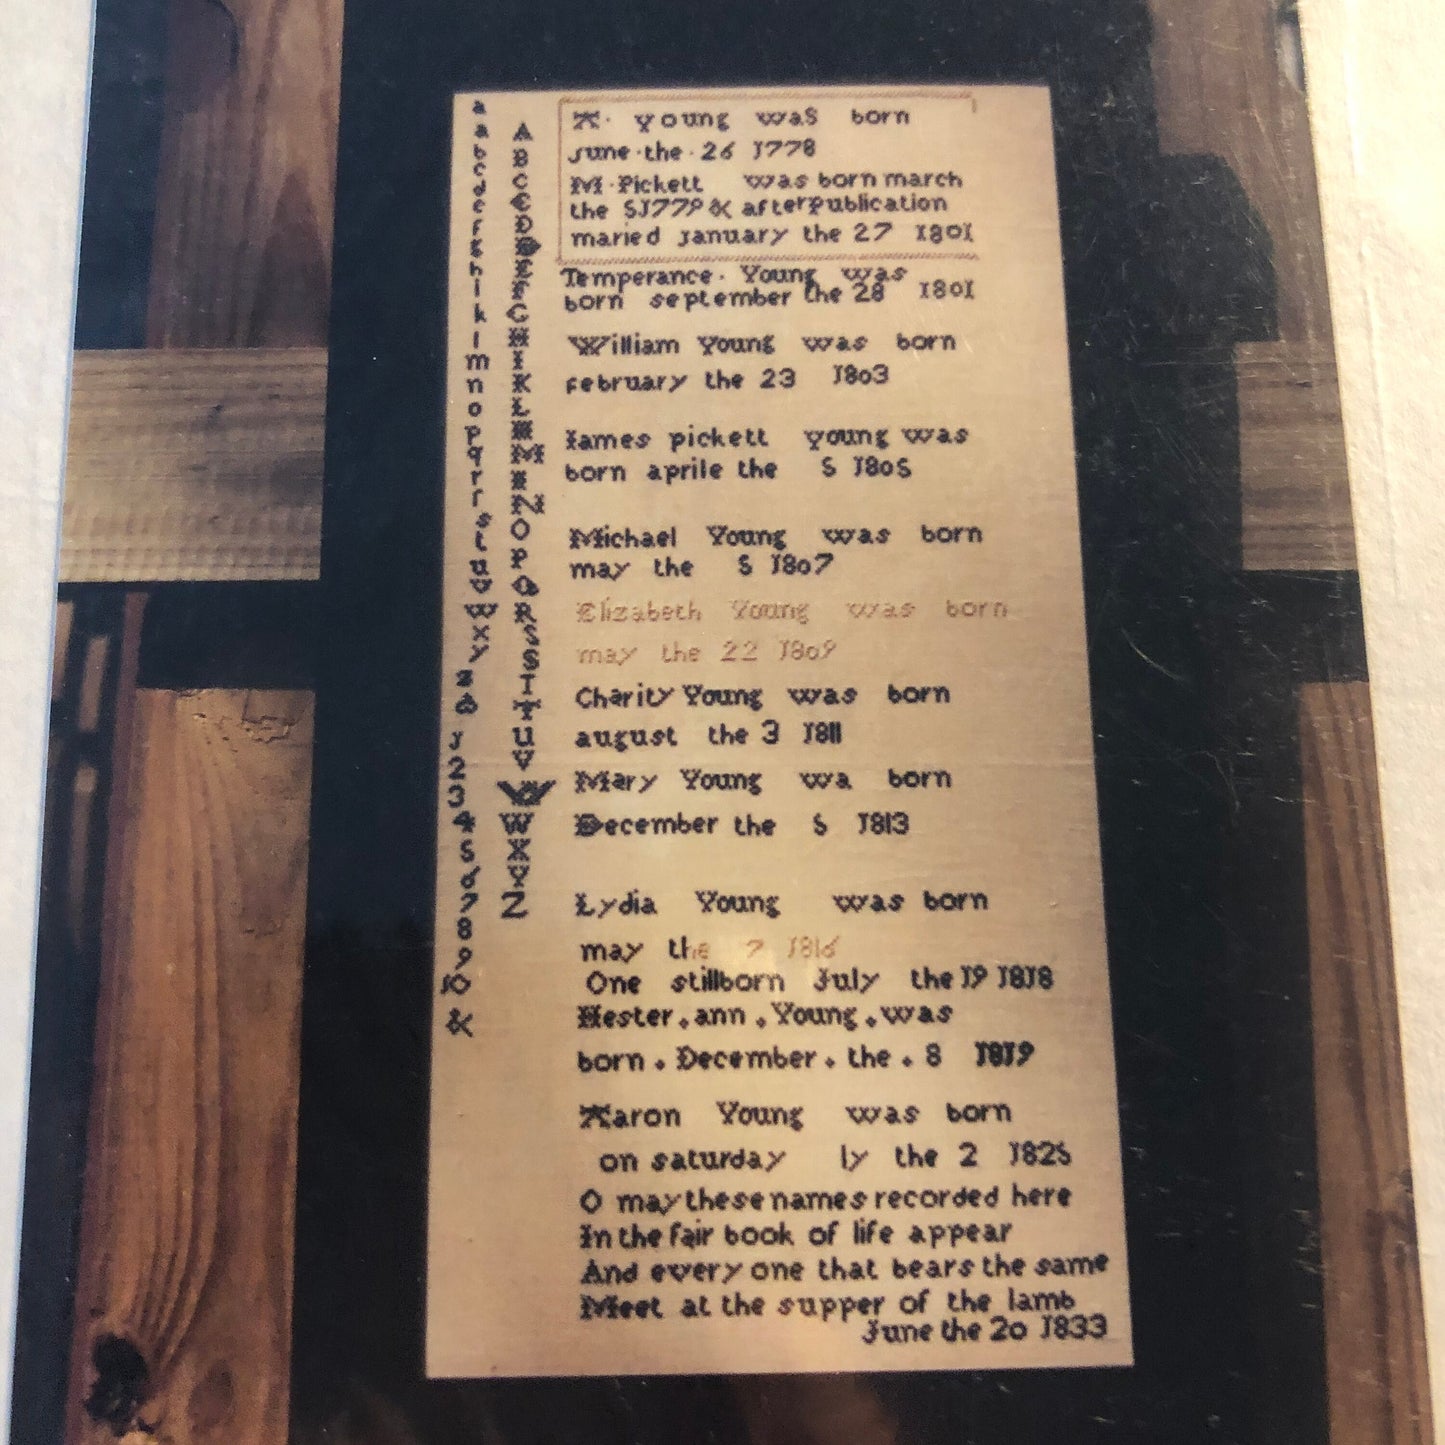 a
a
b
c
d
e
f
g
h
i
k
l
m
n
o
p
q
r
ſ
s
t
u
v
w
x
y
z
&
J
2
3
4
5
6
7
8
9
J0
&
A
B
C
E
D
E
F
G
H
I
K
L
M
N
O
P
Q
R
S
S
I
T
U
V
W
X
Y
Z
A· young was born
June·the·26 J778
M·Pickett was born march
the 5J779 & afterpublication
maried January the 27 I80I
Temperance· Young was
born september the 28 I80I
William Young was born
february the 23 J803
Iames pickett young was
born aprile the 5 J805
Michael Young was born
may the 5 J807
Elizabeth Young was born
may the 22 J809
Charity Young was born
august the 3 J8II
Mary Young wa born
December the 5 J8I3
Lydia Young was born
may the 7 J8I6
One stillborn July the J9 J8J8
Hester.ann.Young.was
born.December.the.8 J8J9
Aaron Young was born
on saturday ly the 2 J825
O may these names recorded here
In the fair book of life appear
And every one that bears the same
Meet at the supper of the lamb
June the 20 J833